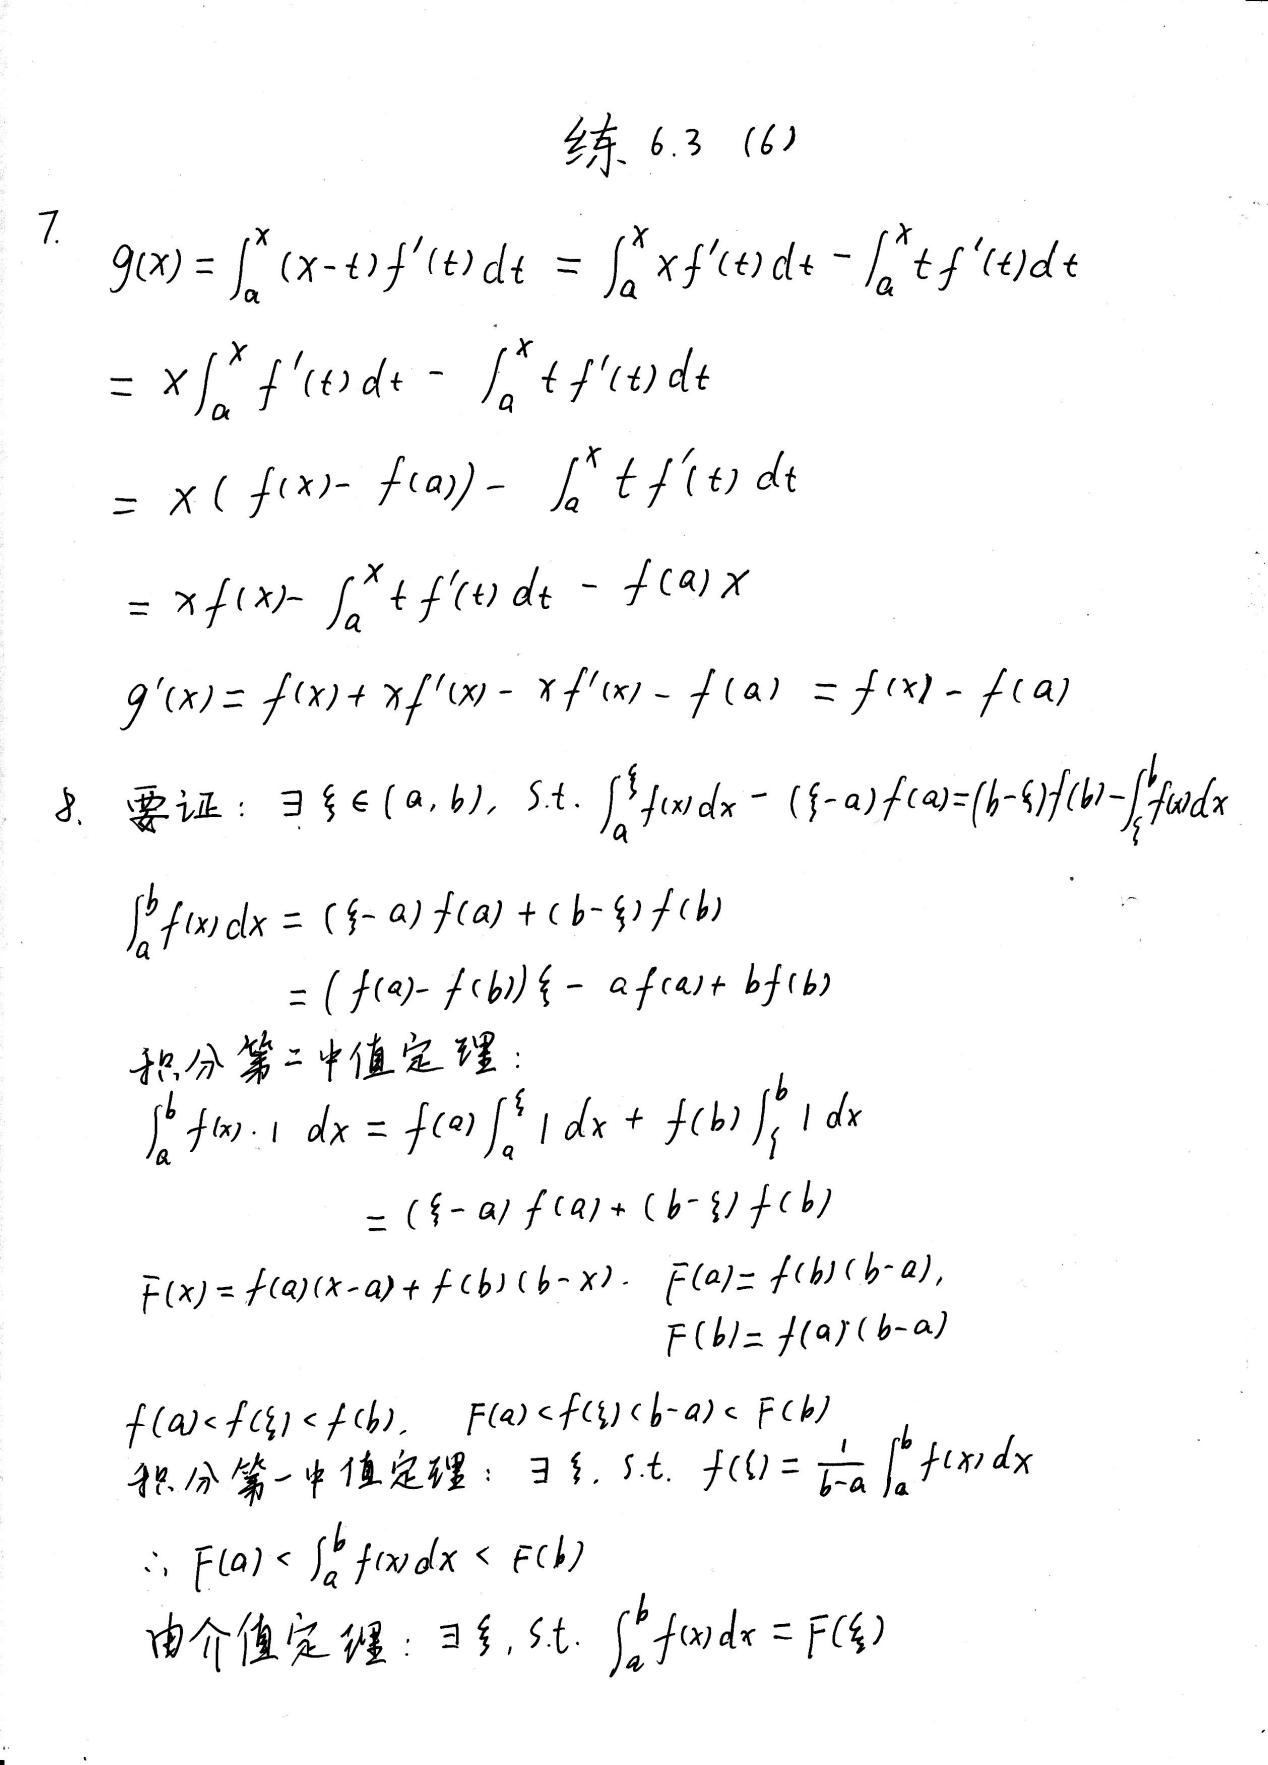 练 6.3 (6)
7.
g(x) = ∫_a^x (x-t) f'(t) dt = ∫_a^x x f'(t) dt - ∫_a^x t f'(t) dt
= x ∫_a^x f'(t) dt - ∫_a^x t f'(t) dt
= x ( f(x) - f(a)) - ∫_a^x t f'(t) dt
= x f(x) - ∫_a^x t f'(t) dt - f(a) x
g'(x) = f(x) + x f'(x) - x f'(x) - f(a) = f(x) - f(a)
8. 要证: ∃ ξ ∈ (a, b), s.t. ∫_a^ξ f(x) dx - (ξ-a) f(a) = (b-ξ) f(b) - ∫_ξ^b f(x) dx
∫_a^b f(x) dx = (ξ-a) f(a) + (b-ξ) f(b)
= ( f(a) - f(b)) ξ - a f(a) + b f(b)
积分第二中值定理:
∫_a^b f(x) · 1 dx = f(a) ∫_a^ξ 1 dx + f(b) ∫_ξ^b 1 dx
= (ξ-a) f(a) + (b-ξ) f(b)
F(x) = f(a)(x-a) + f(b)(b-x). F(a) = f(b)(b-a),
F(b) = f(a)(b-a)
f(a) < f(ξ) < f(b), F(a) < f(ξ)(b-a) < F(b)
积分第一中值定理: ∃ ξ, s.t. f(ξ) = \frac{1}{b-a} ∫_a^b f(x) dx
∴ F(a) < ∫_a^b f(x) dx < F(b)
由介值定理: ∃ ξ, s.t. ∫_a^b f(x) dx = F(ξ)